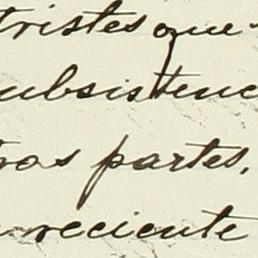 tristes que
ubsistenc
ros partes.
reciente